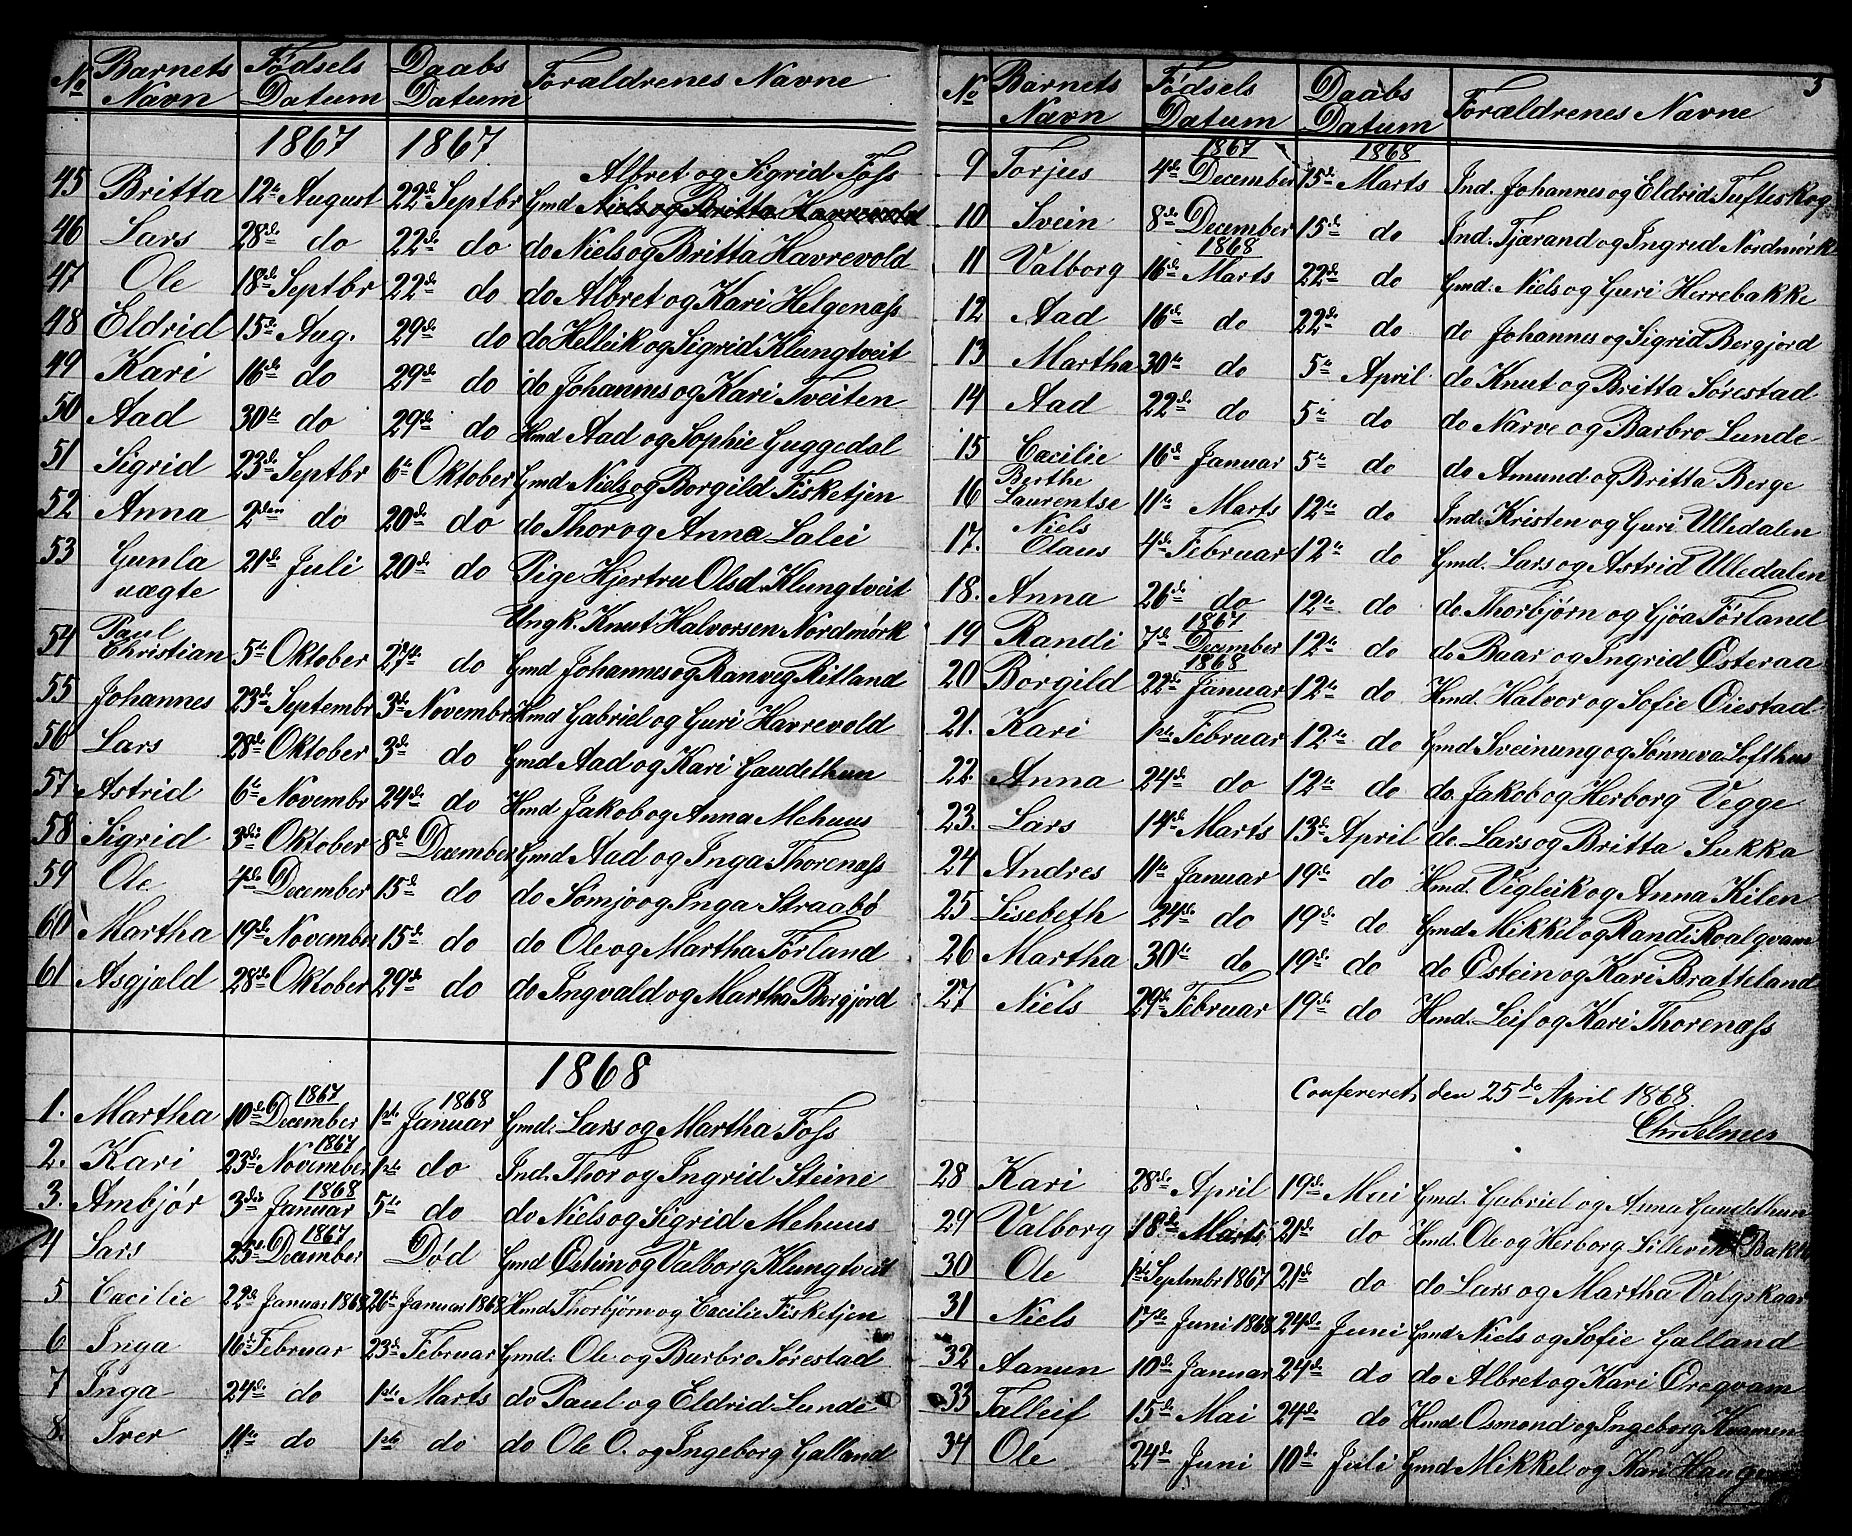 No Barnets Navn Fødsels Datum Daabs Datum Forældrenes Navne
1867 1867
Albret og Sigrid Foss
45 Britta 12te August 22de Septbr Gmd Niels og Britta Havrevold
46 Lars 28de do 22de do do Niels og Britta Havrevold
47 Ole 18de Septbr 22de do do Albret og Kari Helgenass
48 Eldrid 15de Aug. 29de do do Helleik og Sigrid Klungtveit
49 Kari 16de do 29de do do Johannes og Kari Tveiten
50 Aad 30te do 29de do Hmd Aad og Sophie Guggedal
51 Sigrid 23de Septbr 6te Oktober Gmd Niels og Borgild Fisketjen
52 Anna 2den do 20de do do Thor og Anna Lalei
53 Gunla 21de Juli 20de do Pige Hjertru Olsd. Klungtveit
uægte Ungk. Knut Halvorsen Nordmørk
54 Paul Christian 5te Oktober 27de do Gmd Johannes og Ranveg Ritland
55 Johannes 23de Septembr 3de Novembr Hmd Gabriel og Guri Havrevold
56 Lars 28de Oktober 3de do Gmd Aad og Kari Gaudethun
57 Astrid 6te Novembr 24de do Hmd Jakob og Anna Mehuus
58 Sigrid 3die Oktober 8de December Gmd Aad og Inga Thorenass
59 Ole 4de December 15de do do Sømjo og Inga Straabø
60 Martha 19de November 15de do do Ole og Martha Førland
61 Asgjald 28de Oktober 29de do do Ingvald og Martha Bergjord
1868
1867 1868
1. Martha 10de December 1ste Januar Gmd. Lars og Martha Foss
1867
2. Kari 23de November 1ste do Ind. Thor og Ingrid Steine
1868
3. Ambjør 3die Januar 5te do do Niels og Sigrid Mehuus
1867
4 Lars 25de December Død Gmd Østein og Valborg Klungtveit
5 Cæcilie 22de Januar 1868 26te Januar 1868 Hmd Thorbjørn og Cæcilie Fisketjen
6 Inga 16de Februar 23de Februar Gmd. Ole og Barbro Sørestad
7 Inga 24de do 1ste Marts do Paul og Eldrid Lunde
8. Iver 11te do 1ste do do Ole O. og Ingeborg Galland
3
No Barnets Navn Fødsels Datum Daabs Datum Forældrenes Navne
1867 1868
9 Torjus 4de December 15de Marts Ind. Johannes og Eldrid Tufteskog
10 Svein 8de December 15de do Ind. Tjærand og Ingrid Nordmørk
1868
11 Valborg 16de Marts 22de do Gmd. Niels og Guri Herrebakke
12 Aad 16de do 22de do do Johannes og Sigrid Bergjord
13 Martha 30te do 5te April do Knut og Britta Sørestad
14 Aad 22de do 5te do do Narve og Barbro Lunde
15 Cæcilie 16de Januar 5te do do Amund og Britta Berge
16 Berthe Laurentse 11te Marts 12te do Ind. Kristen og Guri Ulledalen
17. Niels Olaus 4de Februar 12te do Gmd. Lars og Astrid Ulledalen
18. Anna 26de do 12te do do Thorbjørn og Gjøa Førland
1867
19 Randi 7de December 12te do do Baar og Ingrid Østeraa
1868
20 Borgild 22de Januar 12te do Hmd. Halvor og Sofie Øiestad
21. Kari 1ste Februar 12te do Gmd Sveinung og Sønneva Lofthus
22. Anna 24de do 12te do do. Jakob og Herborg Vegge
23. Lars 14de Marts 13de April do. Lars og Britta Sukka
24 Andres 11te Januar 19de do Hmd. Vigleik og Anna Kilen
25 Lisebeth 24de do 19de do Gmd Mikkel og Randi Roalqvam
26 Martha 30te do 19de do do Østein og Kari Bratteland
27 Niels 29de Februar 19de do Hmd. Leif og Kari Thorenass
Confereret, den 25de April 1868.
Chr. Selmer
28 Kari 28de April 19de Mai Gmd. Gabriel og Anna Gaudethun
29 Valborg 18de Marts 21de do Hmd. Ole og Herborg Bakk
30 Ole 1ste Septmbr 1867 21de do do Lars og Martha Valgskaar
31 Niels 17de Juni 1868 24de Juni Gmd Niels og Sofie Galland
32 Aanun 10de Januar 24de do do Albret og Kari Øregvam
33 Talleif 15de Mai 24de do Hmd. Osmond og Ingeborg Kvamen
34 Ole 24de Juni 10de Juli Gmd Mikkel og Kari